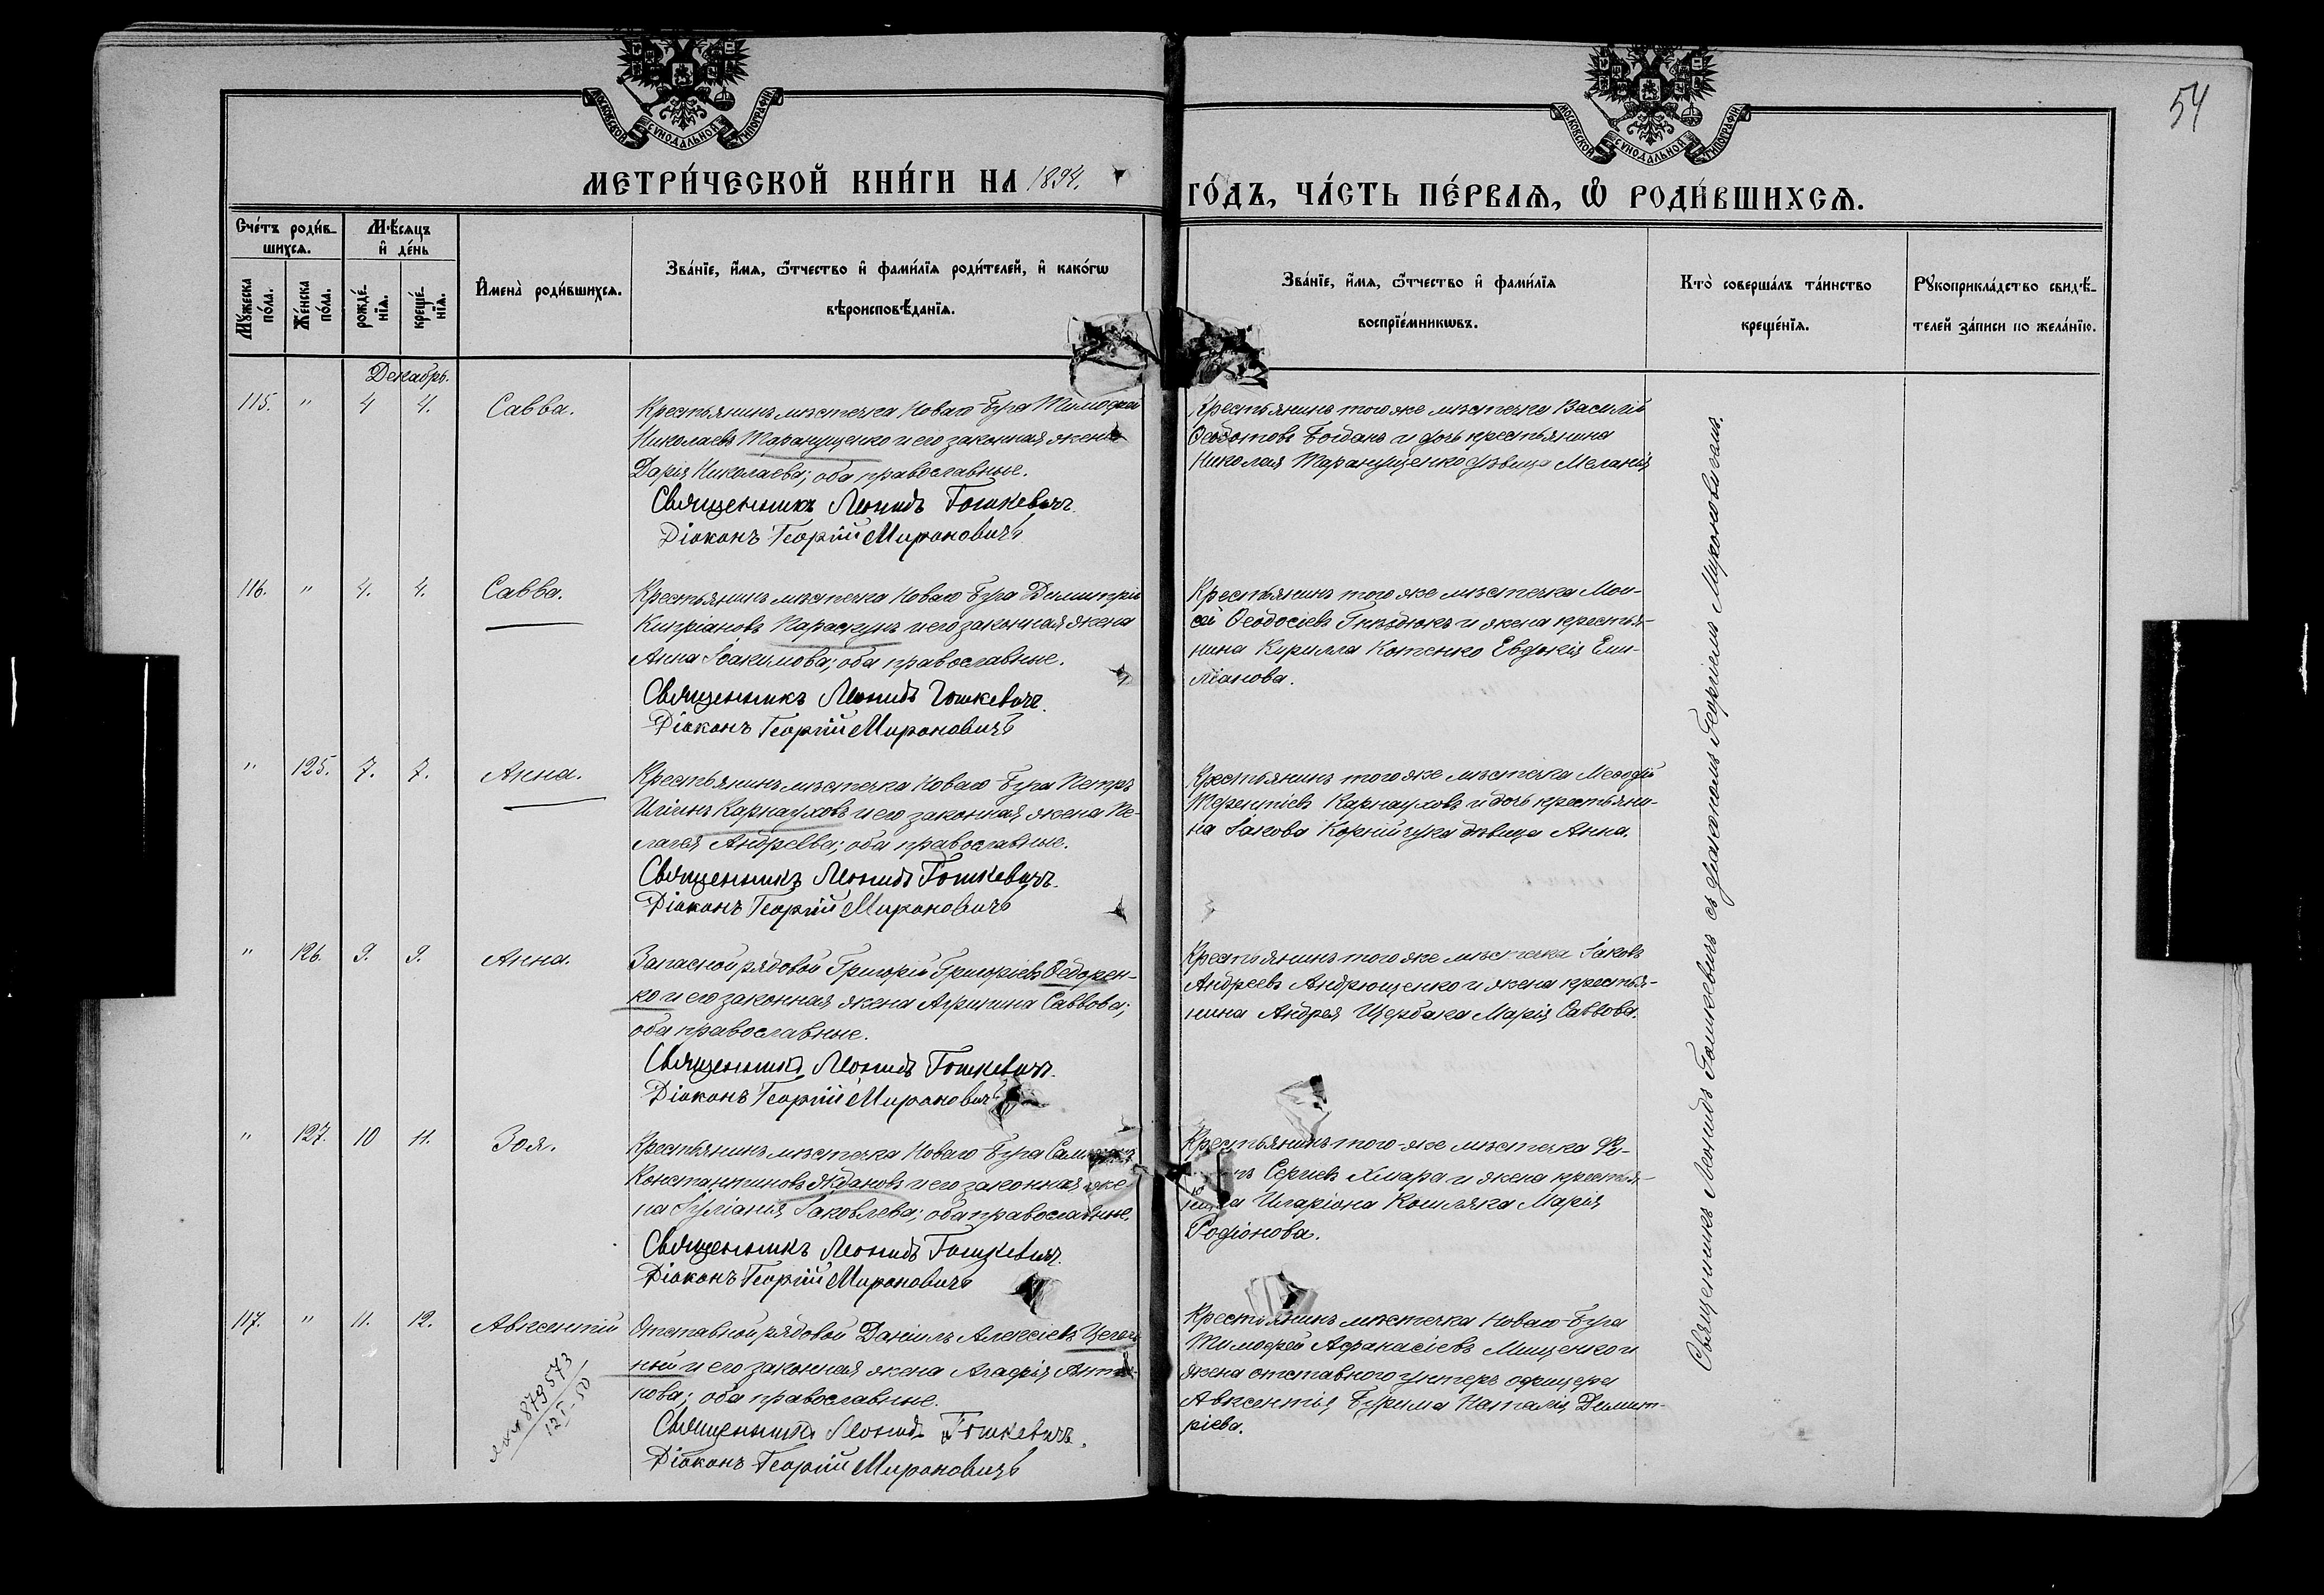 54
МОСКОВСКОЙ СѴНОДАЛЬНОЙ ТИПОГРАФІИ
МОСКОВСКОЙ СѴНОДАЛЬНОЙ ТИПОГРАФІИ
МЕТРИ́ЧЕСКОЙ КНИ́ГИ НА 1894.
ГО́ДЪ, ЧА́СТЬ ПЕ́РВАѦ, Ѽ РОДИ́ВШИХСѦ.
Сче́тъ роди́в-
шихсѧ.
Мѣ́сѧцъ
и҆ де́нь
Мꙋ́жеска
по́ла.
Же́нска
по́ла.
рожде́-
нїѧ.
креще́-
нїѧ.
И҆мена̀ роди́вшихсѧ.
Зва́нїе, и҆́мѧ, ѻ҆́тчество и҆ фами́лїѧ роди́телей, и҆ како́гѡ
вѣроисповѣ́данїѧ.
Зва́нїе, и҆́мѧ, ѻ҆́тчество и҆ фами́лїѧ
воспрїе́мникѡвъ.
Кто̀ соверша́лъ та́инство
креще́нїѧ.
Рꙋкоприкла́дство свидѣ́-
телей за́писи по жела́нїю.
Декабрь.
115. " 4 4. Савва.
Крестьянинъ мѣстечка Новаго Буга Тимофей
Николаевъ Таранущенко и его законная жена
Дарія Николаева; оба православные.
Священникъ Леонидъ Гошкевичъ.
Діаконъ Георгій Мироновичъ
Крестьянинъ того же мѣстечка Василій
Ѳедотовъ Богданъ и дочь крестьянина
Николая Таранущенко дѣвица Меланія
116. " 4. 4. Савва.
Крестьянинъ мѣстечка Новаго Буга Димитрій
Кипріановъ Параскунъ и его законная жена
Анна Іоакимова; оба православные.
Священникъ Леонидъ Гошкевичъ.
Діаконъ Георгій Мироновичъ
Крестьянинъ того же мѣстечка Мои-
сей Ѳеодосіевъ Гнѣдюкъ и жена крестья-
нина Кирилла Котенко Евдокія Еми-
ліанова.
" 125. 7. 7. Анна.
Крестьянинъ мѣстечка Новаго Буга Петръ
Иліинъ Карнауховъ и его законная жена Пе-
лагея Андреева; оба православные.
Священникъ Леонидъ Гошкевичъ.
Діаконъ Георгій Мироновичъ
Крестьянинъ того же мѣстечка Меѳодій
Терентіевъ Карнауховъ и дочь крестьяни-
на Іакова Корнійчука дѣвица Анна.
" 126. 9. 9. Анна.
Запасной рядовой Григорій Григоріевъ Ѳедорен-
ко и его законная жена Агрипина Саввова;
оба православные.
Священникъ Леонидъ Гошкевичъ.
Діаконъ Георгій Мироновичъ
Крестьянинъ того же мѣстечка Іаковъ
Андреевъ Андрющенко и жена крестья-
нина Андрея Щербака Марія Саввова.
" 127. 10 11. Зоя.
Крестьянинъ мѣстечка Новаго Буга
Константиновъ Ждановъ и его законная же-
на Іуліанія Іаковлева; оба православные.
Священникъ Леонидъ Гошкевичъ.
Діаконъ Георгій Мироновичъ
Крестьянинъ того-же мѣстечка
Сергіевъ Хмара и жена крестья-
нина Иларіона Кошляка Марія
Родіонова.
117. " 11. 12. Авксентій
Отставной рядовой Даніилъ Алексіевъ
ный и его законная жена Агафія
нова; оба православные.
Священникъ Леонидъ Гошкевичъ.
Діаконъ Георгій Мироновичъ
Крестьянинъ мѣстечка Новаго-Буга
Тимофей Аѳанасіевъ Мищенко и
жена отставного унтеръ офицера
Авксентія Бурима Наталія Димит-
ріева.
879573
12 I-50
Священникъ Леонидъ Гошкевичъ съ діакономъ Георгіемъ Мироновичемъ.